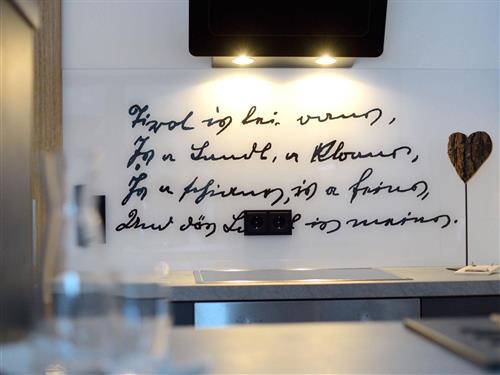 Tirol is lei oans,
Is a Landl, a kloans,
Is a schians, is a feins,
Und dös Landl is meins.